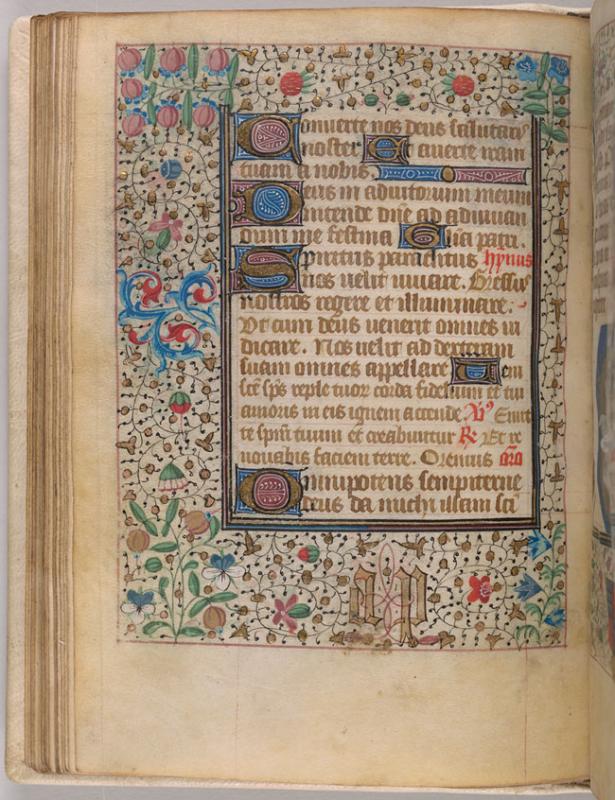 Converte nos deus salutaris
noster Et averte iram
tuam a nobis.
Deus in adiutorium meum
intende dne ad adiuuan
dum me festina Gl'ia patri.
Spiritus paraclitus hymnus
nos velit iuvare. Gressus
nostros regere et illuminare.
Ut cum deus venerit omnes iu
dicare. Nos velit ad dexteram
suam omnes appellare Veni
sce sps reple tuor corda fidelium et tui
amoris in eis ignem accende V Emit
te spm tuum et creabuntur R Et re
novabis faciem terre. Oremus
Omnipotens sempiterne
deus da michi illam sci